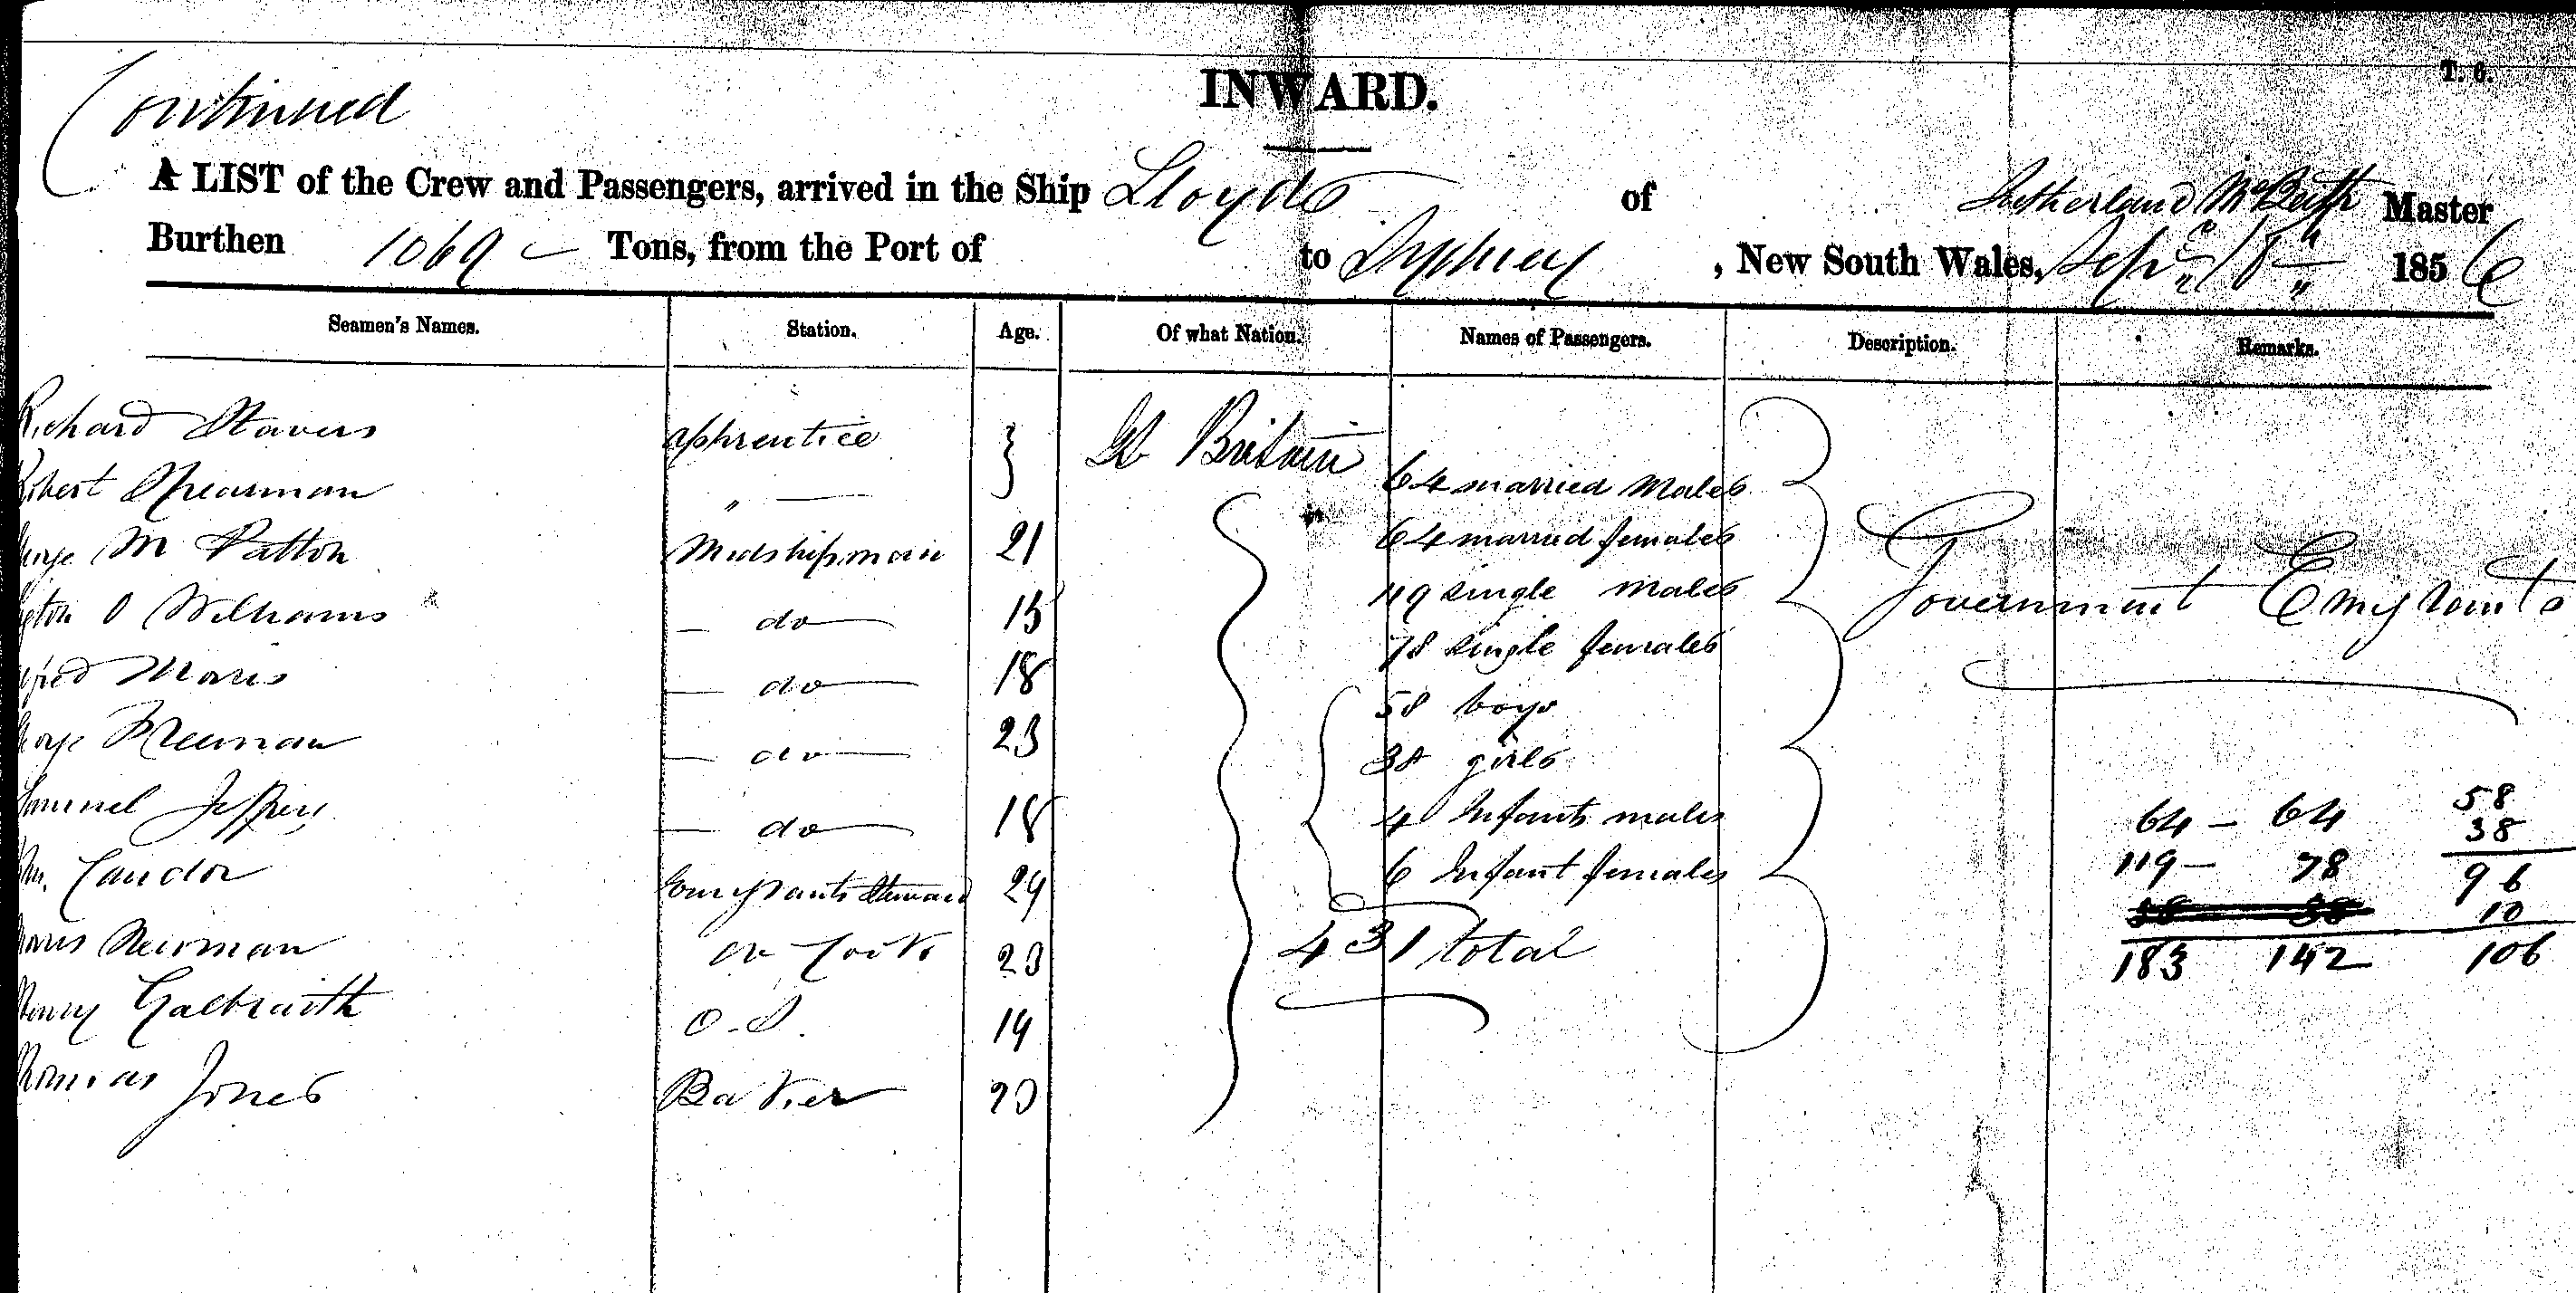 Continued
INWARD.
T. 6.
A LIST of the Crew and Passengers, arrived in the Ship Lloyds of Sutherland McBeth Master
Burthen 1069 Tons, from the Port of to Sydney, New South Wales, Sepr 18th 1856
Seamen's Names. Station. Age. Of what Nation. Names of Passengers. Description. Remarks.
Richard Stavers apprentice } Gt Britain
Robert Shearman " — 64 married Males
George M Patton Midshipman 21 64 married females
O Williams — do — 15 119 single males Government Emigrants
Moris — do — 18 78 single females
George Freeman — do — 23 58 boys
38 girls
Samuel Jeffery — do — 18 4 Infants males 64 — 64 58
38
Wm. Candor Emigrants Steward 29 6 Infant females 119 — 78 96
58 38 10
Newman do Cook 23 431 total 183 142 106
Henry Galbraith O.S. 19
Thomas Jones Baker 20